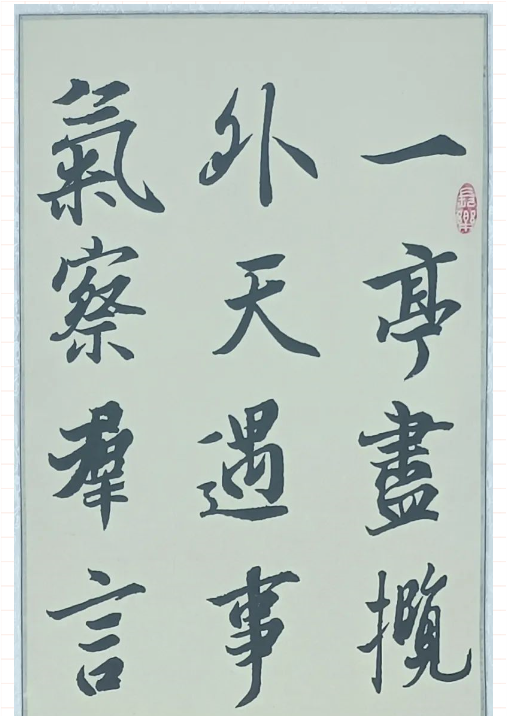 一亭盡攬
外天遇事
氣察羣言